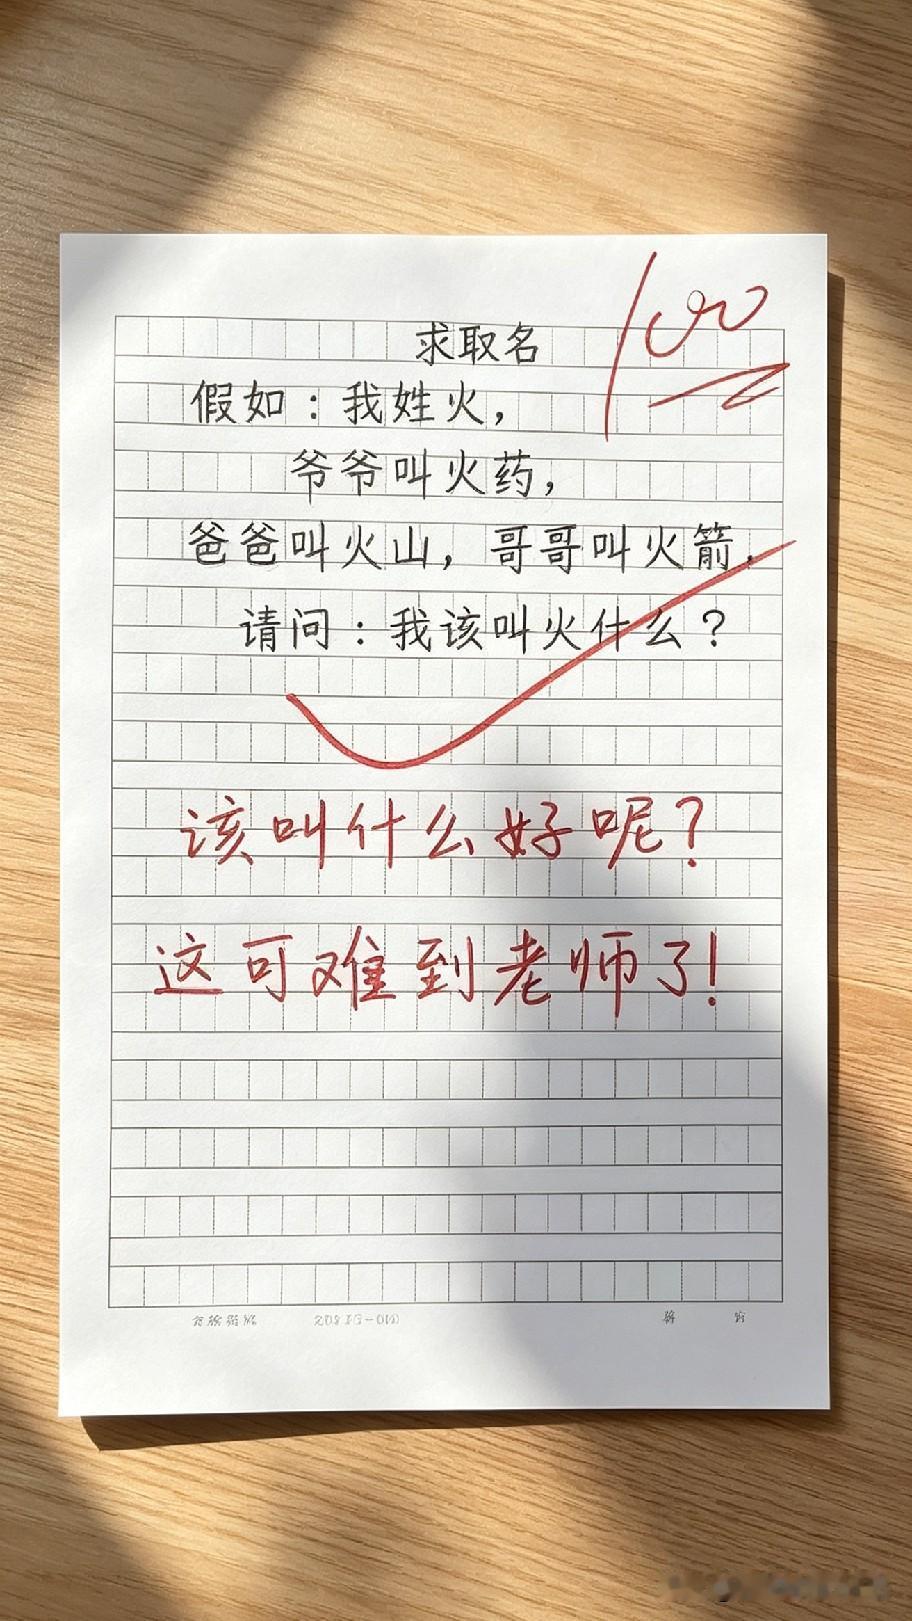 100
求取名
假如：我姓火，
爷爷叫火药，
爸爸叫火山，哥哥叫火箭，
请问：我该叫火什么？
该叫什么好呢？
这可难到老师了！